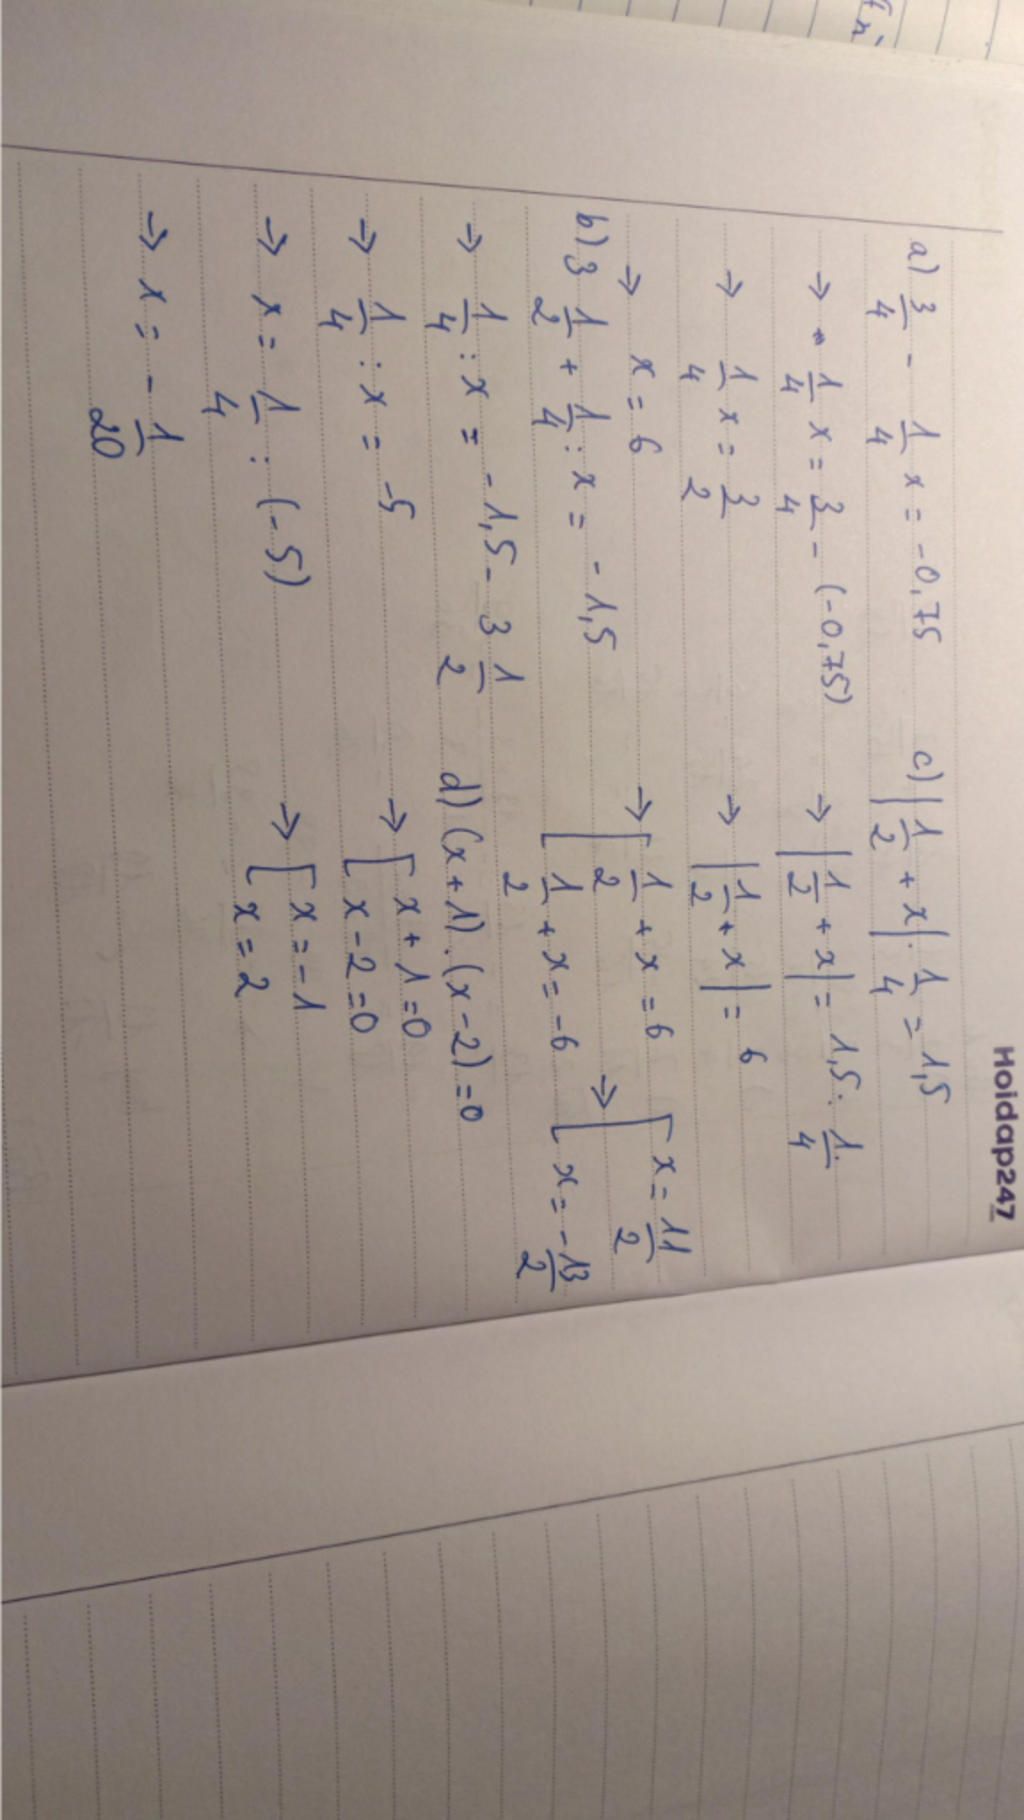 Hoidap247
a) 3/4 - 1/4 x = -0,75
→ 1/4 x = 3/4 - (-0,75)
→ 1/4 x = 3/2
→ x = 6
b) 3 1/2 + 1/4 : x = -1,5
→ 1/4 : x = -1,5 - 3 1/2
→ 1/4 : x = -5
→ x = 1/4 : (-5)
→ x = - 1/20
c) |1/2 + x| . 1/4 = 1,5
→ |1/2 + x| = 1,5 : 1/4
→ |1/2 + x| = 6
→ [ 1/2 + x = 6
1/2 + x = -6
→ [ x = 11/2
x = - 13/2
d) (x + 1) . (x - 2) = 0
→ [ x + 1 = 0
x - 2 = 0
→ [ x = -1
x = 2